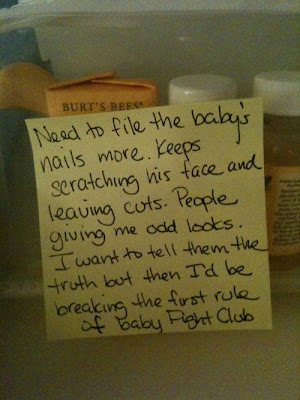 BURT'S BEES
Need to file the baby's
nails more. Keeps
scratching his face and
leaving cuts. People
giving me odd looks.
I want to tell them the
truth but then I'd be
breaking the first rule
of baby Fight Club